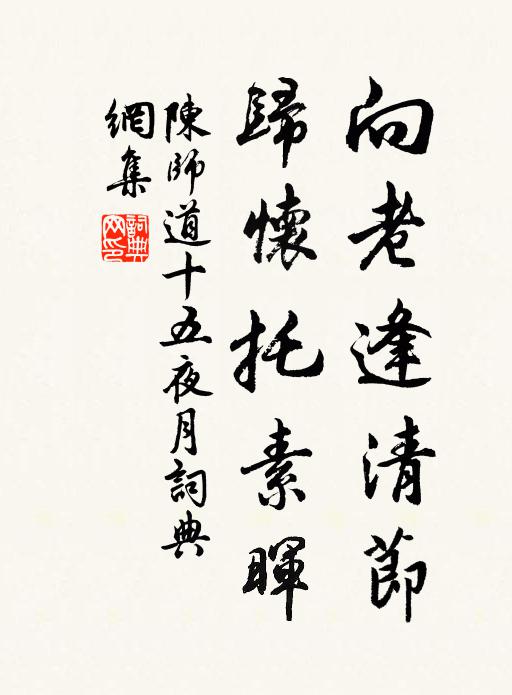 向老逢清節
歸懷托素暉
陳師道十五夜月詞典
網集
詞典
网印